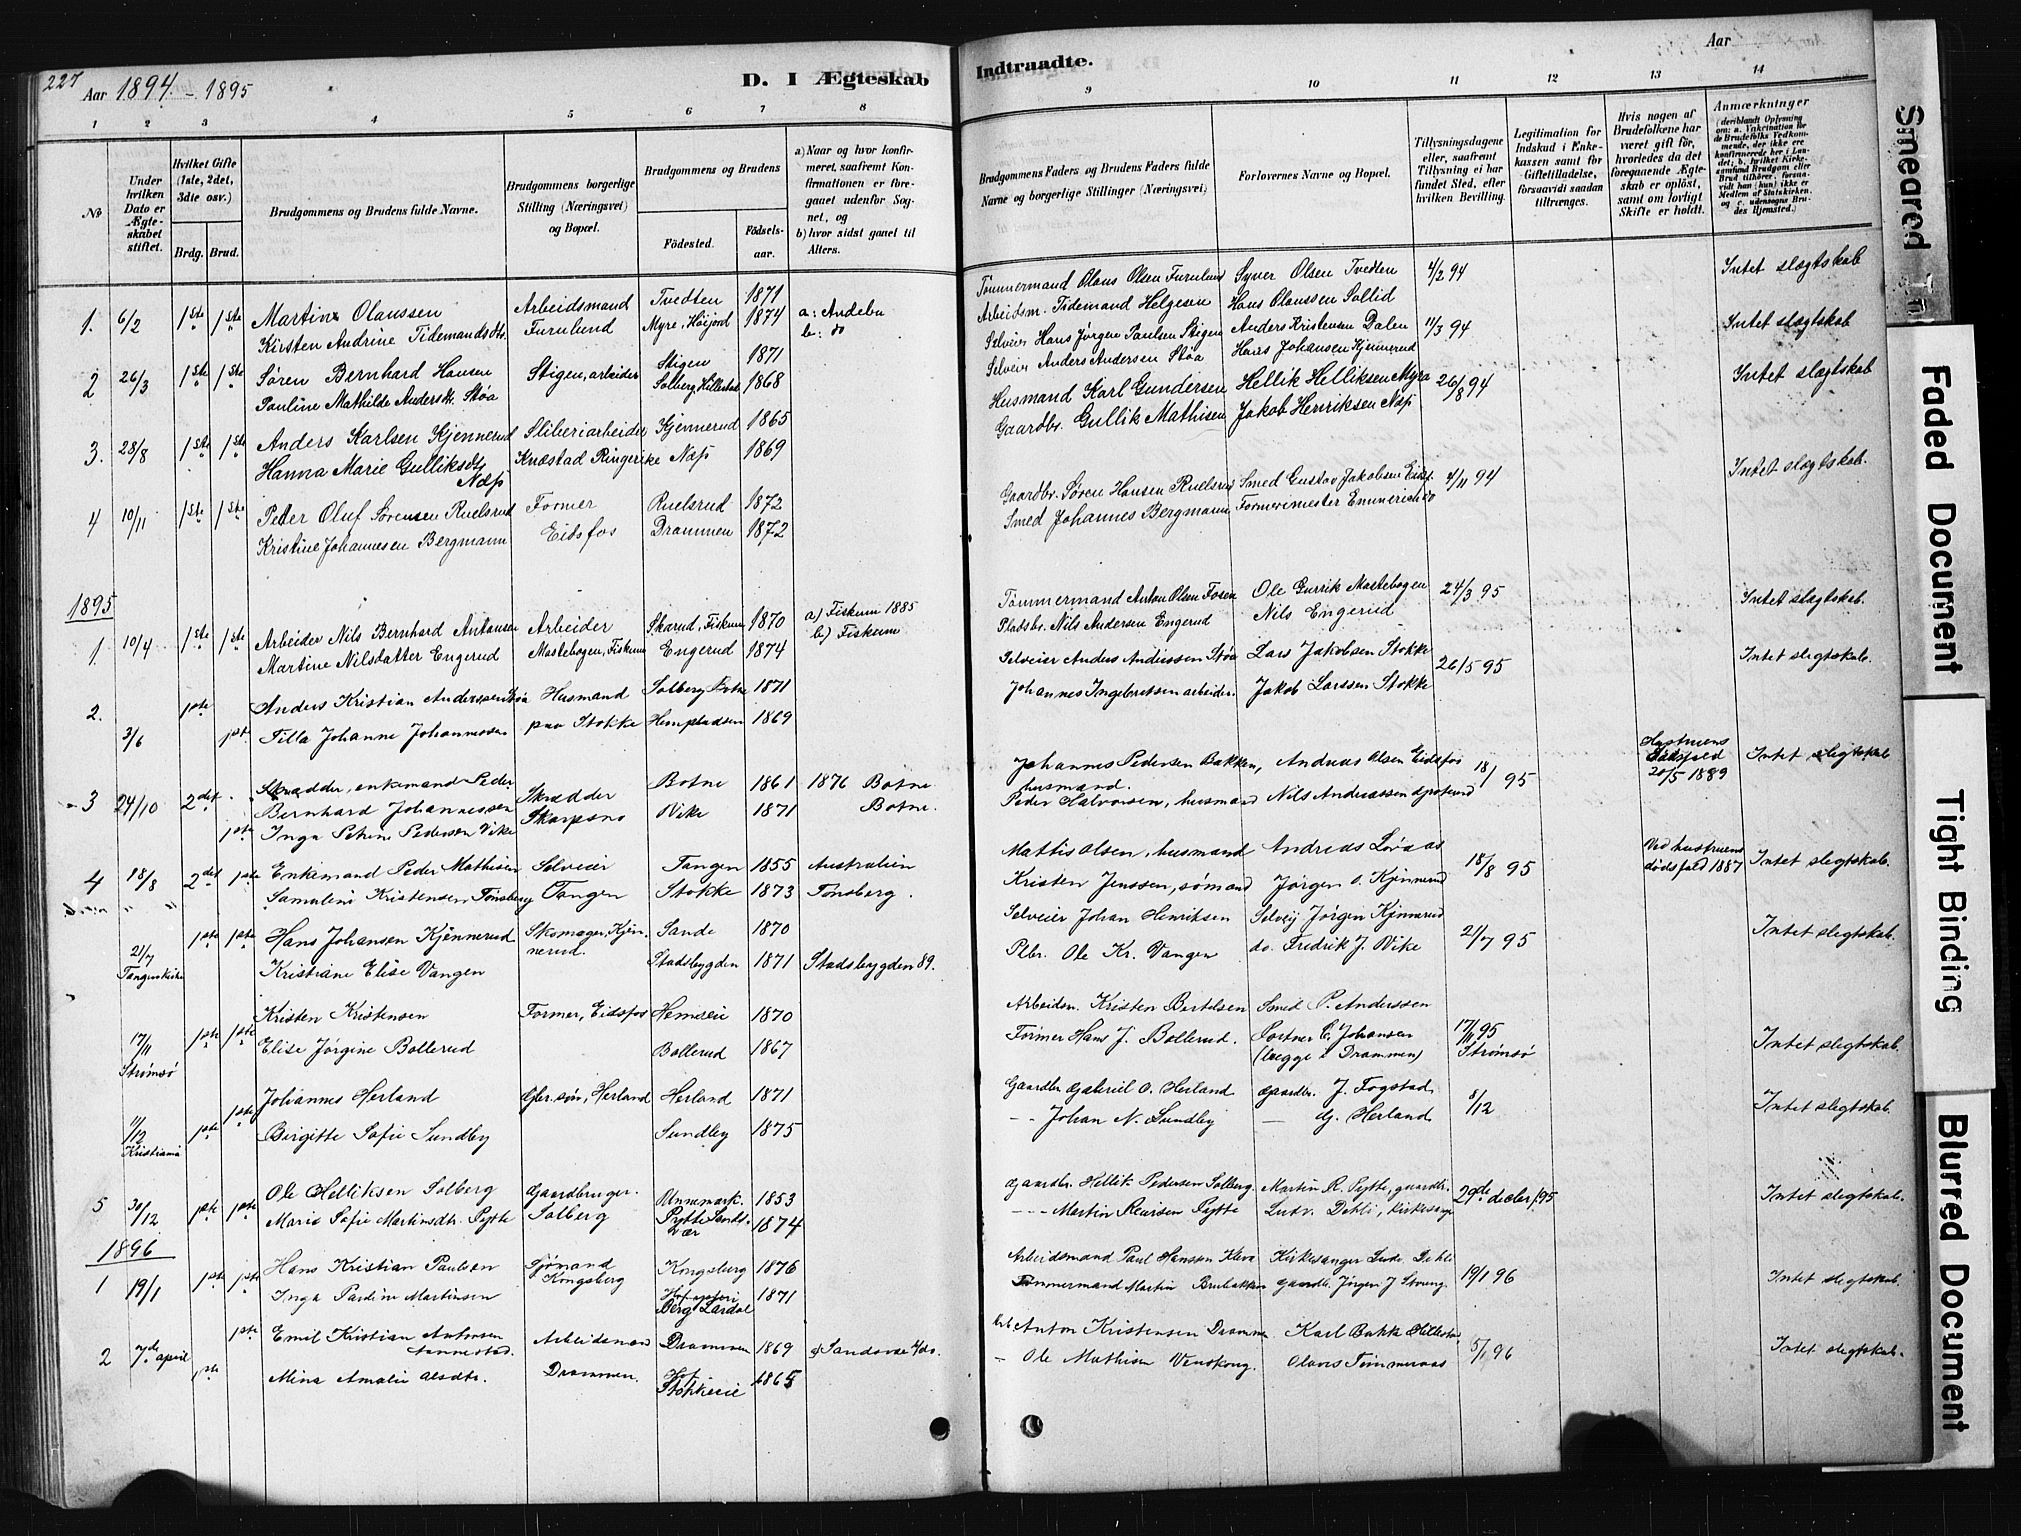 227
Aar 1894 - 1895
D. I Ægteskab
Indtraadte.
Aar
1 2 3 4 5 6 7 8 9 10 11 12 13 14
No
Under hvilken Dato er Ægteskabet stiftet.
Hvilket Gifte (1ste, 2det, 3die osv.)
Brdg. Brud.
Brudgommens og Brudens fulde Navne.
Brudgommens borgerlige Stilling (Næringsvei) og Bopæl.
Brudgommens og Brudens
Födested.
Födselsaar.
a) Naar og hvor konfirmeret, saafremt Konfirmationen er foregaaet udenfor Sognet, og
b) hvor sidst gaaet til Alters.
Brudgommens Faders og Brudens Faders fulde Navne og borgerlige Stillinger (Næringsvei)
Forlovernes Navne og Bopæl.
Tillysningsdagene eller, saafremt Tillysning ei har fundet Sted, efter hvilken Bevilling.
Legitimation for Indskud i Enkekassen samt for Giftetilladelse, forsaavidt saadan tiltrænges.
Hvis nogen af Brudefolkene har været gift før, hvorledes da det foregaaende Ægteskab er oplöst, samt om lovligt Skifte er holdt.
Anmærkninger (deriblandt Oplysning om: a. Vakcination for de Brudefolks Vedkommende, der ikke ere konfirmerede her i Landet; b. hvilket Kirkesamfund Brudgom eller Brud tilhører, forsaavidt han (hun) ikke er Medlem af Statskirken, og c. udensogns Brudes Hjemsted.)
1. 6/2 1ste 1ste Martin Olaussen Arbeidsmand Tvedten 1871 a: Andebu Tømmermand Olaus Olsen Furulund Syver Olsen Tvedten 4/2 94 Intet slægtskab
Kirsten Andrine Tidemandsdt. Furulund Myre, Høijord 1874 b: do Arbeidsm. Tidemand Helgesen Hans Olaussen Sollid
2 26/3 1ste 1ste Søren Bernhard Hansen Stigen, arbeider Stigen 1871 Selveier Hans Jørgen Paulsen Stigen Anders Kristensen Dalen 11/3 94 Intet slægtskab
Pauline Mathilde Andersdt. Støa Solberg, Hillestad 1868 Selveier Anders Andersen Støa Hans Johansen Kjennerud
3. 28/8 1ste 1ste Anders Karlsen Kjennerud Sliberiarbeider Kjennerud 1865 Husmand Karl Gundersen Hellik Helliksen Myra 26/8 94 Intet slægtskab
Hanna Marie Gulliksdt. Næs Knæstad Ringerike Næs 1869 Gaardbr. Gullik Mathisen Jakob Henriksen Næs
4 10/11 1ste 1ste Peter Oluf Sørensen Ruelsrud Former Ruelsrud 1872 Gaardbr. Søren Hansen Ruelsrud Smed Gustav Jakobsen Eidsf. 4/11 94 Intet slægtskab.
Kristine Johannesen Bergmann Eidsfos Drammen 1872 Smed Johannes Bergmann Formerimester Emmerich do
1895
1. 10/4 1ste 1ste Arbeider Nils Bernhard Antonsen Arbeider Skarud, Fiskum 1870 a) Fiskum 1885 Tømmermand Anton Olsen Fosen Ole Gurrik Mastebogen 24/3 95 Intet slægtskab.
Martine Nilsdatter Engerud Mastebogen, Fiskum Engerud 1874 b) Fiskum Pladsbr. Nils Andersen Engerud Nils Engerud
2. 3/6 1ste Anders Kristian Anderssen Støa Husmand Solberg Botne 1871 Selveier Anders Anderssen Støa Lars Jakobsen Stokke 26/5 95 Intet slegtskab.
1ste Tilla Johanne Johannessen paa Stokke Hempladsen 1869 Johannes Ingebretsen arbeider. Jakob Larssen Stokke
3 24/10 2det Skrædder, enkemand Peder Bernhard Johannessen Skrædder Botne 1861 1876 Botne Johannes Pedersen Bakken, husmand. Andreas Olsen Eidsfos 18/1 95 Hustruens dödsfald 20/5 1889 Intet slegtskab
1ste Inga Petrine Pedersen Vike Skarpsno Vike 1871 Botne. Peder Halvorsen, husmand Nils Andreassen
4 18/8 2det 1ste Enkemand Peder Mathisen Selveier Tangen 1855 Australien Mattis Olsen, husmand Andreas Løvaas 18/8 95 Ved hustruens dødsfald 1887 Intet slegtskab.
Samuline Kristensen Tønsberg Tangen Stokke 1873 Tønsberg. Kristen Jenssen, sømand Jørgen O. Kjønnerud
21/7 Tangenskirke 1ste 1ste Hans Johansen Kjønnerud Skomager, Kjønnerud. Sande 1870 Selveier Johan Henriksen Selvei Jörgen Kjønnerud 21/7 95 Intet slegtskab.
Kristiane Elise Vangen Stadsbygden 1871 Stadsbygden 89. Plbr. Ole Kr. Vangen do. Fredrik J. Vike
17/11 Strømsø 1ste 1ste Kristen Kristensen Former, Eidsfos Hemseie 1870 Arbeidsm. Kristen Bertelsen Smed P. Anderssen 17/11 95 Strømsø Intet slegtskab.
Elise Jørgine Bollerud Bollerud 1867 Former Hans J. Bollerud. Portner C. Johansen (begge i Drammen)
11/12 Kristiania 1ste 1ste Johannes Herland Gbr. søn, Herland Herland 1871 Gaardbr Gabriel O. Herland Gaardbr. J. Fogstad 8/12 Intet slegtskab.
Birgitte Sofie Sundby Sundby 1875 — Johan N. Sundby — Herland
5 30/12 1ste 1ste Ole Helliksen Solberg Gaardbruger Unnemark. 1853 Gaardbr. Hellik Pedersen Solberg. Martin R. Pytte, gaardbr. 29de decbr 95 Intet slegtskab.
Marie Sofie Martinsdtr. Pytte Solberg Pytte Sandsvær 1874 — Martin Reiersen Pytte Ludv. Dehli, kirkesanger
1896
1 19/1 1ste 1ste Hans Kristian Paulsen Sjømand Kongsberg 1876 Arbeidsmand Paul Hansen Kleva Kirkesanger Ludv. Dehli 19/1 96 Intet slegtskab.
Inga Pauline Martinsen Kongsberg Berg Lardal 1871 Tømmermand Martin Brubakken Gaardbr. Jørgen J
2 7de april 1ste Emil Kristian Antonsen Arbeidsmand Drammen 1869 Anton Kristensen Dramme Karl Bakke Hillestad 5/1 96 Intet slegtskab.
1ste Mina Amalie Olsdtr. Drammen. Hof 1865 — Ole Mathisen Olaves Tømmeraas
Smeared
Faded Document
Tight Binding
Blurred Document